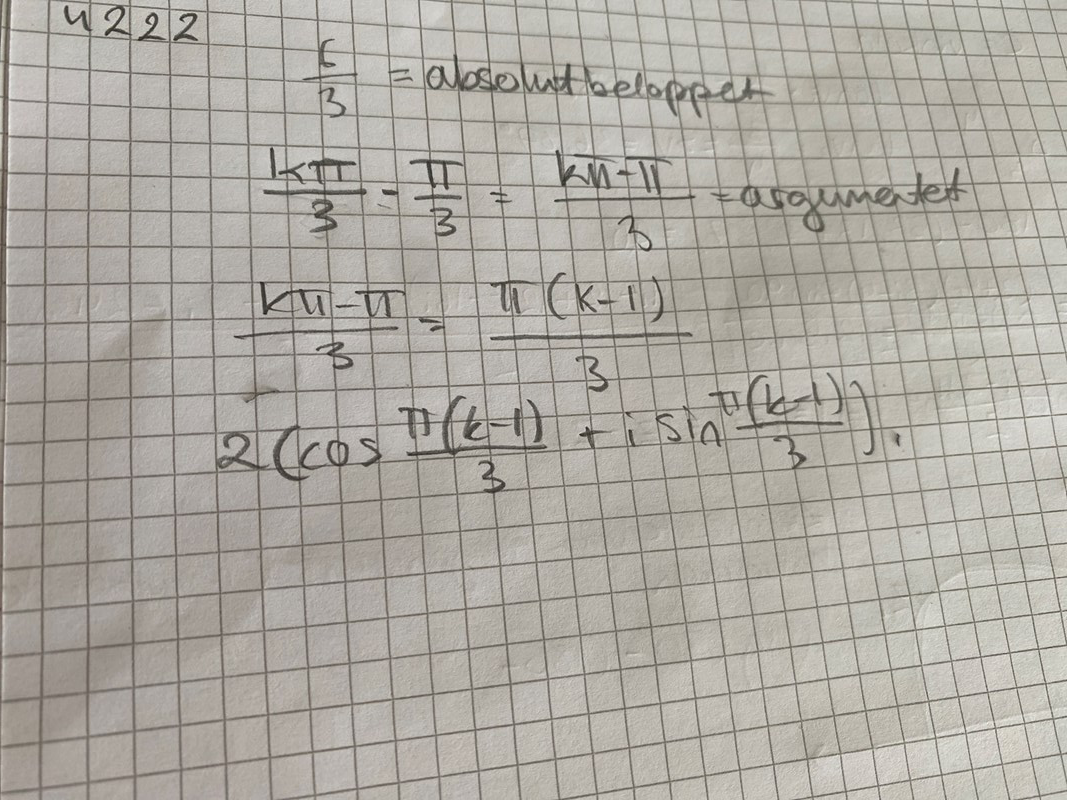 4222
6/3 = absolutbeloppet
kπ/3 - π/3 = kπ-π/3 = argumentet
kπ-π/3 = π(k-1)/3
2(cos π(k-1)/3 + i sin π(k-1)/3).